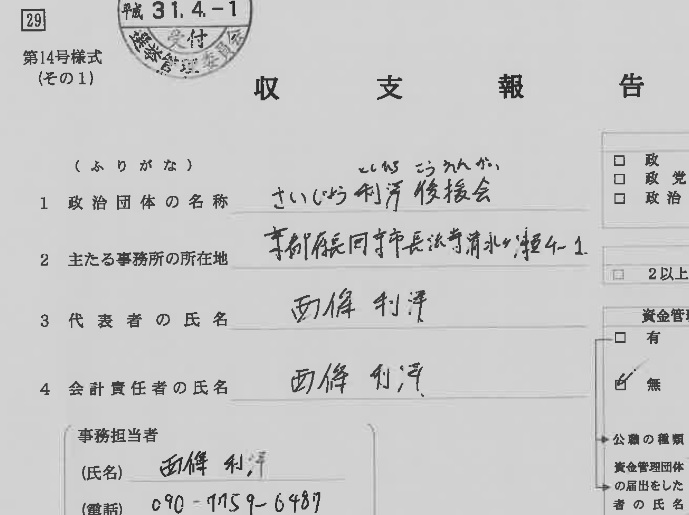 29
平成 31.4.-1
受付
選挙管理委員会
第14号様式
(その1)
収支報告
(ふりがな)
としひろ こうえんかい
1 政治団体の名称 さいじょう利洋後援会
2 主たる事務所の所在地 京都府長岡京市長法寺清水ヶ瀬4-1
3 代表者の氏名 西條 利洋
4 会計責任者の氏名 西條 利洋
事務担当者
(氏名) 西條 利洋
(電話) 090-7759-6487
□ 政
□ 政党
□ 政治
□ 2以上
資金管理
□ 有
☑ 無
公職の種類
資金管理団体
の届出をした
者の氏名